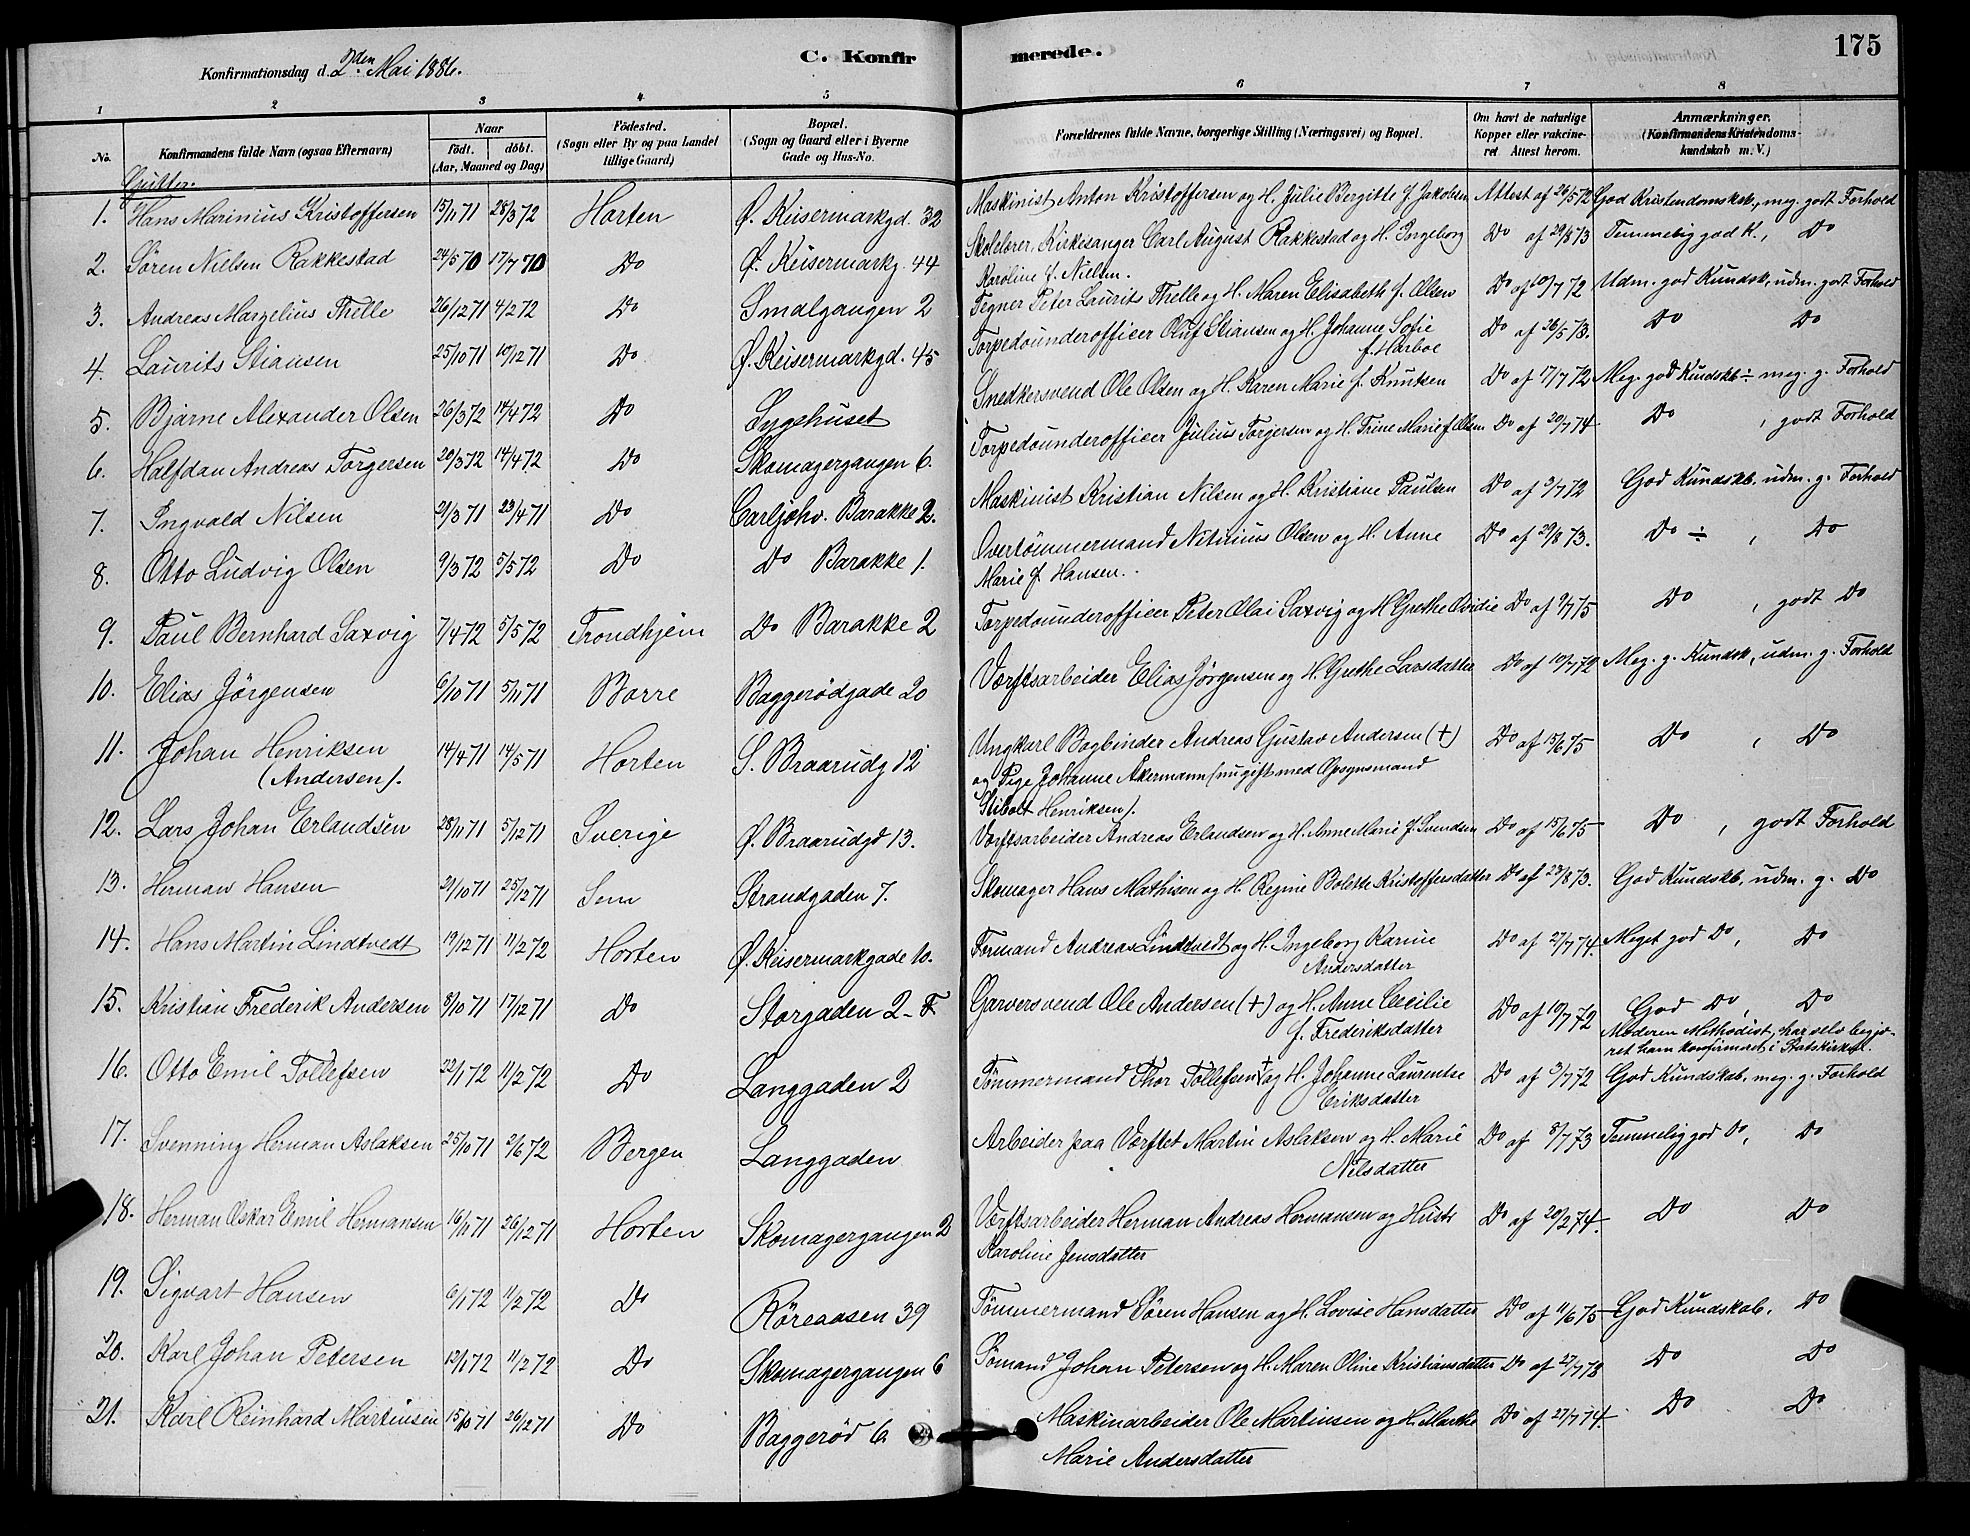 175
Konfirmationsdag d. 2den Mai 1886.
C. Konfirmerede.
1 2 3 4 5 6 7 8
No.
Konfirmandens fulde Navn (ogsaa Efternavn)
Naar
født. døbt.
(Aar, Maaned og Dag)
Fødested.
(Sogn eller By og paa Landet
tillige Gaard)
Bopæl.
(Sogn og Gaard eller i Byerne
Gade og Hus-No.
Forældrenes fulde Navne, borgerlige Stilling (Næringsvei) og Bopæl.
Om havt de naturlige
Kopper eller vakcine-
ret Attest herom.
Anmærkninger.
(Konfirmandens Kristendoms-
kundskab m. V.)
Gutter.
1. Hans Marinius Kristoffersen 15/11 71 28/3 72 Horten Ø. Keisermarkgd. 32 Maskinist Anton Kristoffersen og H. Julie Bergitte f. Jakobsen Attest af 29/5 72 God Kristendomskb., meg. godt Forhold
2. Søren Nielsen Rakkestad 24/5 70 17/7 70 Do Ø. Keisermarkg. 44 Skolelærer, Kirkesanger Carl August Rakkestad og H. Ingeborg Do af 29/8 73 Temmelig god K., Do
Karoline f. Nielsen.
3. Andreas Marzelius Thelle 26/12 71 4/2 72 Do Smalgangen 2 Tegner Peter Laurits Thelle og H. Maren Elisabeth f. Olsen Do af 10/7 72 Udm. god Kundsk, udm. godt Forhold
4. Laurits Stiansen 25/10 71 10/12 71 Do Ø. Keisermarkgd. 45 Torpedounderofficer Oluf Stiansen og H. Johanne Sofie Do af 26/5 73. Do Do
f. Harboe
5. Bjarne Alexander Olsen 26/3 72 14/4 72 Do Sygehuset Snedkersvend Ole Olsen og H. Karen Marie f. Knutsen Do af 17/7 72 Meg. god Kundskb ÷ meg. g. Forhold
6. Halfdan Andreas Torgersen 20/3 72 14/4 72 Do Skomagergangen 6. Torpedounderofficer Julius Torgersen og H. Trine Marie f. Olsen Do af 20/7 74 Do , godt Forhold
7. Ingvald Nilsen 21/3 71 23/4 71 Do Carljohv. Barakke 2. Maskinist Kristian Nilsen og H. Kristiane Paulsen Do af 3/7 72 God Kundskb, udm. g. Forhold
8. Otto Ludvig Olsen 9/3 72 5/5 72 Do Do Barakke 1. Overtømmermand Nitinius Olsen og H. Anne Do af 29/8 73. Do ÷ , Do
Marie f. Hansen.
9. Paul Bernhard Saxvig 7/4 72 5/5 72 Trondhjem Do Barakke 2 Torpedounderofficer Peter Olai Saxvig og H Grethe Ovidie Do af 9/7 75 Do , godt Do
10. Elias Jørgensen 6/10 71 5/11 71 Borre Baggerødgade 20 Værftsarbeider Elias Jørgensen og H. Grethe Larsdatter Do af 10/7 72 Meg. g. Kundsk, udm. g. Forhold
11. Johan Henriksen 14/4 71 14/5 71 Horten S. Braarudg 12 Ungkarl Bogbinder Andreas Gustav Andersen (+) Do af 15/6 75 Do , Do
(Andersen). og Pige Johanne Akermann (nu gift med Opsynsmand
Stibolt Henriksen).
12. Lars Johan Erlandsen 28/11 71 5/12 71 Sverige Ø. Braarudgd 13. Værftsarbeider Andreas Erlandsen og H. Anne Marie f. Svendsen Do af 15/6 75 Do , godt Forhold
13. Herman Hansen 21/10 71 25/12 71 Sem Strandgaden 7. Skomager Hans Mathisen og H. Regine Bolette Kristoffersdatter Do af 23/8 73. God Kundskb, udm. g. Do
14. Hans Martin Lindtvedt 19/12 71 11/2 72 Horten Ø. Keisermarkgade 10. Formand Andreas Lindtvedt og H. Ingeborg Karine Do af 27/7 74. Meget god Do, Do
Andersdatter
15. Kristian Frederik Andersen 8/10 71 17/12 71 Do Storgaden 2-F Garversvend Ole Andersen (+) og H. Anne Cecilie Do af 10/7 72 God Do, Do
f. Frederiksdatter Moderen Methodist, har selv begjæ-
ret ham konfirmeret i Statskirken.
16. Otto Emil Tollefsen 22/1 72 11/2 72 Do Langgaden 2 Tømmermand Thor Tollefsen + og H. Johanne Laurentse Do af 3/7 72 God Kundskab, meg. g. Forhold
Eriksdatter
17. Svenning Herman Aslaksen 25/10 71 2/6 72 Bergen Langgaden Arbeider paa Værftet Martin Aslaksen og H. Marie Do af 8/7 73 Temmelig god Do, Do
Nilsdatter
18. Herman Oskar Emil Hermansen 16/11 71 26/12 71 Horten Skomagergangen 2 Værftsarbeider Herman Andreas Hermansen og Hustr Do af 20/2 74. Do Do
Karoline Jensdatter
19. Sigvart Hansen 6/1 72 11/2 72 Do Røreaasen 39 Tømmermand Søren Hansen og H. Lovise Hansdatter Do af 11/6 75 God Kundskab. Do
20. Karl Johan Petersen 12/1 72 11/2 72 Do Skomagergangen 6 Sømand Johan Petersen og H. Maren Oline Kristiansdatter Do af 27/7 78 Do Do
21. Karl Reinhard Martinsen 15/10 71 26/12 71 Do Baggerød 6. Maskinarbeider Ole Martinsen og H. Marthe Do af 27/7 74. Do Do
Marie Andersdatter